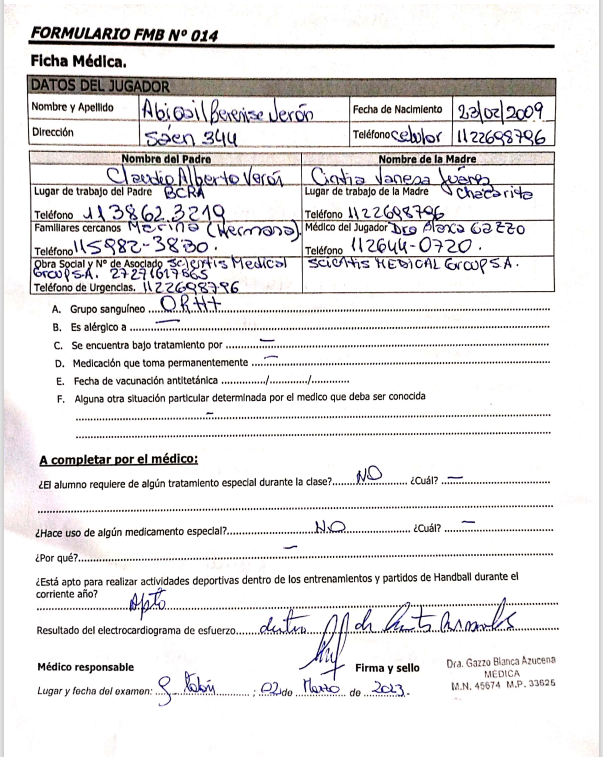 FORMULARIO FMB Nº 014
Ficha Médica.
DATOS DEL JUGADOR
Nombre y Apellido Abigail Berenise Verón Fecha de Nacimiento 23/02/2009
Dirección Sáen 344 Teléfono celular 1122698796
Nombre del Padre Nombre de la Madre
Claudio Alberto Verón Cintia Vanesa Juárez
Lugar de trabajo del Padre BCRA Lugar de trabajo de la Madre Chacarita
Teléfono 113862 3219 Teléfono 1122698796
Familiares cercanos (Hermana) Médico del Jugador Dra Blanca Gazzo
Teléfono 115982-3830. Teléfono 112644-0720.
Obra Social y Nº de Asociado Scientis Medical SCIENTIS MEDICAL Group S.A.
Group S.A. 27271617665
Teléfono de Urgencias. 1122698796
A. Grupo sanguíneo O.RH+
B. Es alérgico a —
C. Se encuentra bajo tratamiento por —
D. Medicación que toma permanentemente —
E. Fecha de vacunación antitetánica ............/............/............
F. Alguna otra situación particular determinada por el medico que deba ser conocida
–
A completar por el médico:
¿El alumno requiere de algún tratamiento especial durante la clase? NO ¿Cuál? —
¿Hace uso de algún medicamento especial? NO ¿Cuál? —
¿Por qué? —
¿Está apto para realizar actividades deportivas dentro de los entrenamientos y partidos de Handball durante el
corriente año?
Apto
Resultado del electrocardiograma de esfuerzo dentro de
Médico responsable Firma y sello
Dra. Gazzo Blanca Azucena
MÉDICA
M.N. 45674 M.P. 33625
Lugar y fecha del examen: ; 02 de Marzo de 2023.